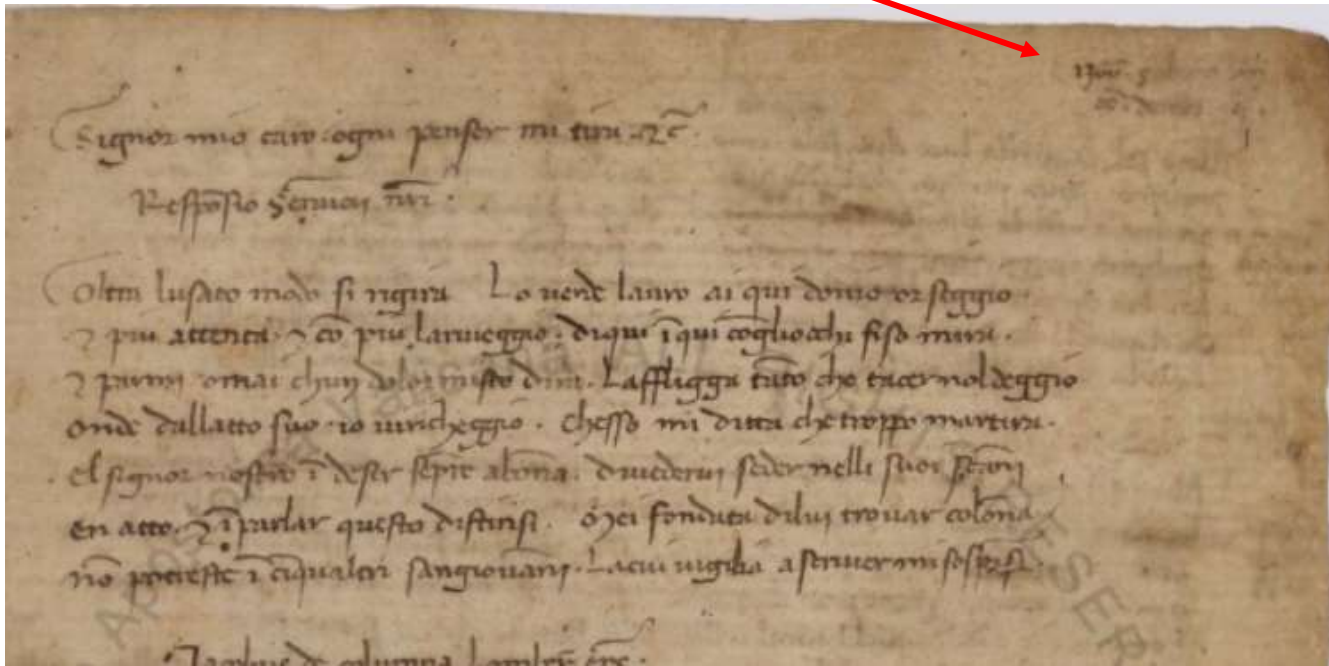 Signor mio caro. ogni penser mi tira. &c̃.
Respõsio Sẽnucij nr̃i.
Oltra lusato modo si rigira Lo uerde lauro ai qui douio or seggio.
& piu attenta. & cõ piu larueggio. diqui ĩ qui cõgliocchi fiso mira.
& parmi omai chun dolor misto dira. Laffligga tãto che tacer nol deggio
onde dallatto suo. io uiricheggio. chesso mi ditta che troppo martira.
El signor nostro ĩ desir sẽpre abõna. diuederui seder nelli suoi scãni
en atto. & ĩ parlar questo distinsi. Mei fondata dilui trouar colõna
nõ potreste ĩ cĩqualtri sangiouãni. Lacui uigilia a scriuer mi sospĩsi.
Jacobus de columna